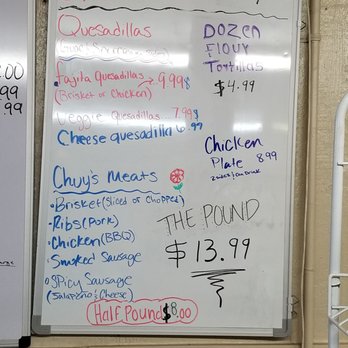 Quesadillas
Fajita Quesadillas → 9.99
(Brisket or Chicken)
Veggie Quesadillas 7.99
Cheese quesadilla 6.99
Dozen
Flour
Tortillas
$4.99
Chicken
Plate 8.99
Chuy's Meats
• Brisket (Sliced or Chopped)
• Ribs (Pork)
• Chicken (BBQ)
• Smoked Sausage
• Spicy Sausage
(Jalapeño & Cheese)
THE POUND
$13.99
Half Pound $8.00
.00
.99
.99